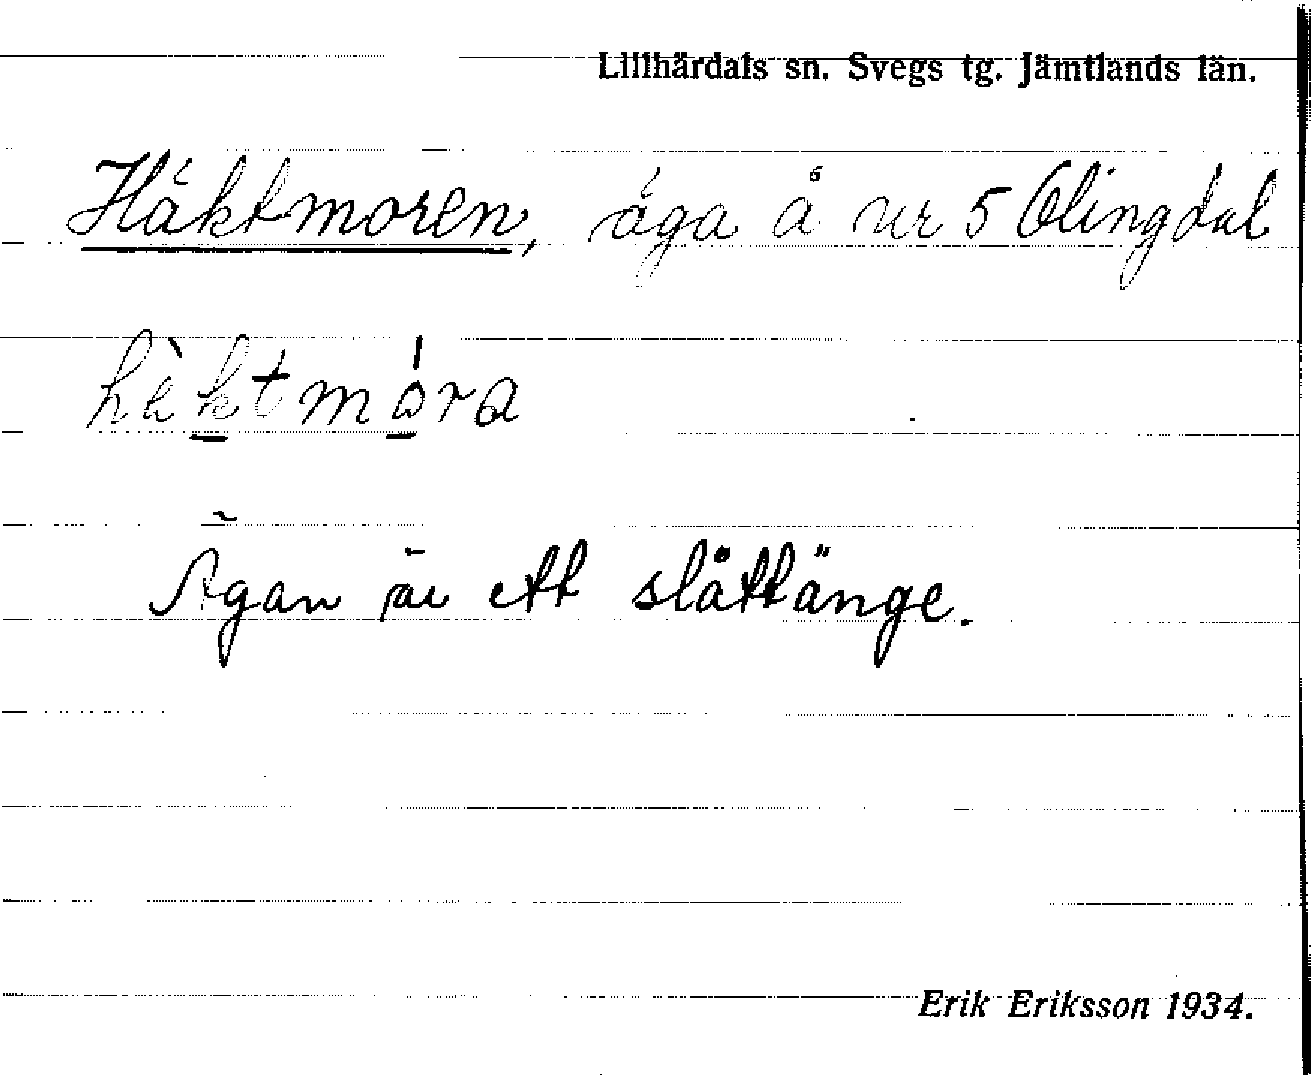 Lillhärdals sn. Svegs tg. Jämtlands län.
Häktmoren, äga å nr 5 Olingdal
hàktmóra
Ägan är ett slåttänge.
Erik Eriksson 1934.